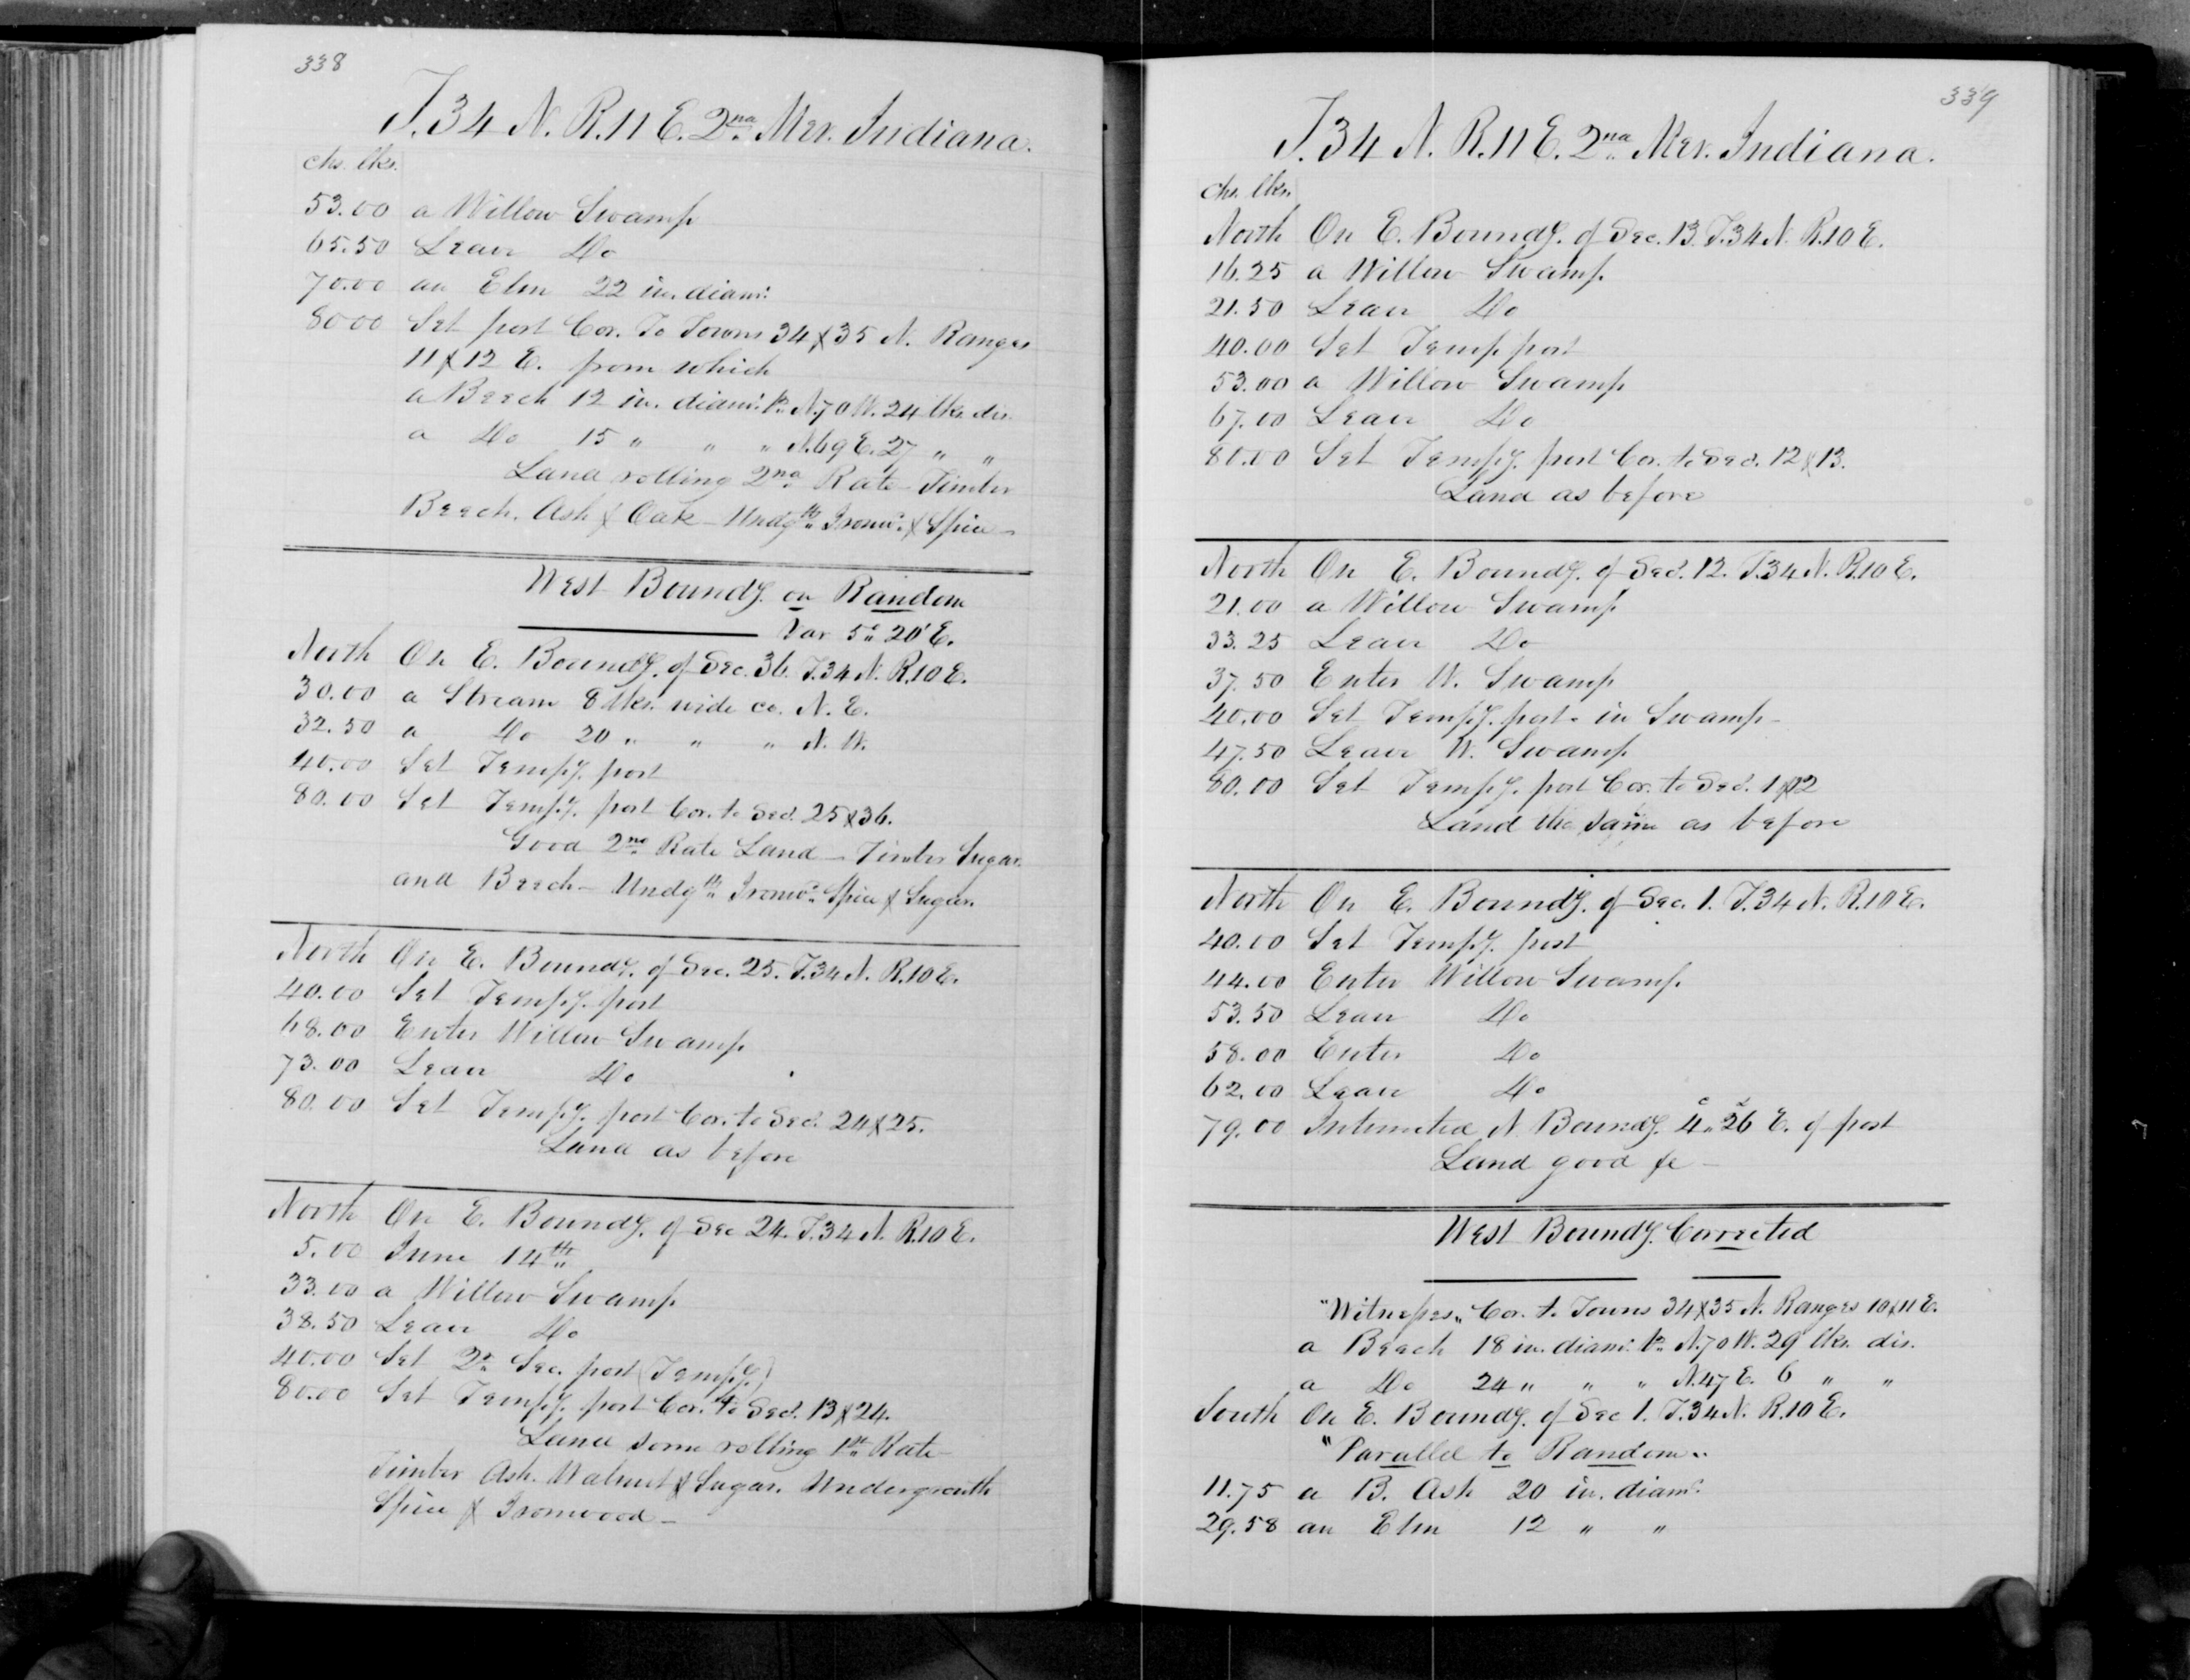 338
T. 34 N. R. 11 E. 2nd Mer. Indiana.
chs. lks.
53.00 a Willow Swamp
65.50 Leave Do
70.00 an Elm 22 in. diamr.
80.00 Set post Cor. To Towns 34 & 35 N. Ranges
11 & 12 E. from which
a Beech 12 in. diamr. brs. N. 70 W. 24 lks. dis.
a Do 15 " " " N. 69 E. 27 " "
Land rolling 2nd Rate - Timber
Beech, Ash & Oak - Undgth. Ironwd. & Spice -
West Boundy. on Random
Var 5° 20' E.
North On E. Boundy. of Sec. 36. T. 34 N. R. 10 E.
30.00 a Stream 8 lks. wide co. N. E.
32.50 a Do 20 " " " N. W.
40.00 Set Tempy. post
80.00 Set Tempy. post Cor. to Secs. 25 & 36.
Good 2nd Rate Land - Timber Sugar
and Beech - Undgth. Ironwd. Spice & Sugar.
North On E. Boundy. of Sec. 25. T. 34 N. R. 10 E.
40.00 Set Tempy. post
68.00 Enter Willow Swamp
73.00 Leave Do
80.00 Set Tempy. post Cor. to Secs. 24 & 25.
Land as before
North On E. Boundy. of Sec 24. T. 34 N. R. 10 E.
5.00 June 14th
33.00 a Willow Swamp
38.50 Leave Do
40.00 Set Qr. Sec. post (Tempy.)
80.00 Set Tempy. post Cor. to Secs. 13 & 24.
Land some rolling 1st Rate -
Timber Ash. Walnut & Sugar. Undergrouth
Spice & Ironwood -
339
T. 34 N. R. 11 E. 2nd Mer. Indiana.
chs. lks.
North On E. Boundy. of Sec. 13. T. 34 N. R. 10 E.
16.25 a Willow Swamp.
21.50 Leave Do
40.00 Set Temp post
53.00 a Willow Swamp
67.00 Leave Do
80.00 Set Tempy. post Cor. to Secs. 12 & 13.
Land as before
North On E. Boundy. of Sec. 12. T. 34 N. R. 10 E.
21.00 a Willow Swamp
33.25 Leave Do
37.50 Enter W. Swamp
40.00 Set Tempy. post - in Swamp -
47.50 Leave W. Swamp
80.00 Set Tempy. post Cor. to Secs. 1 & 12
Land the same as before
North On E. Boundy. of Sec. 1. T. 34 N. R. 10 E.
40.00 Set Tempy. post
44.00 Enter Willow Swamp.
53.50 Leave Do
58.00 Enter Do
62.00 Leave Do
79.00 Intersected N. Boundy. 4 c. 26 E. of post
Land good &c -
West Boundy. Corrected
"Witnesses" Cor. to Towns 34 & 35 N. Ranges 10 & 11 E.
a Beech 18 in. diamr. brs. N. 70 W. 29 lks. dis.
a Do 24 " " " N. 47 E. 6 " "
South On E. Boundy. of Sec 1. T. 34 N. R. 10 E.
"Parallel to Random"
11.75 a B. Ash 20 in. diamr.
29.58 an Elm 12 " "